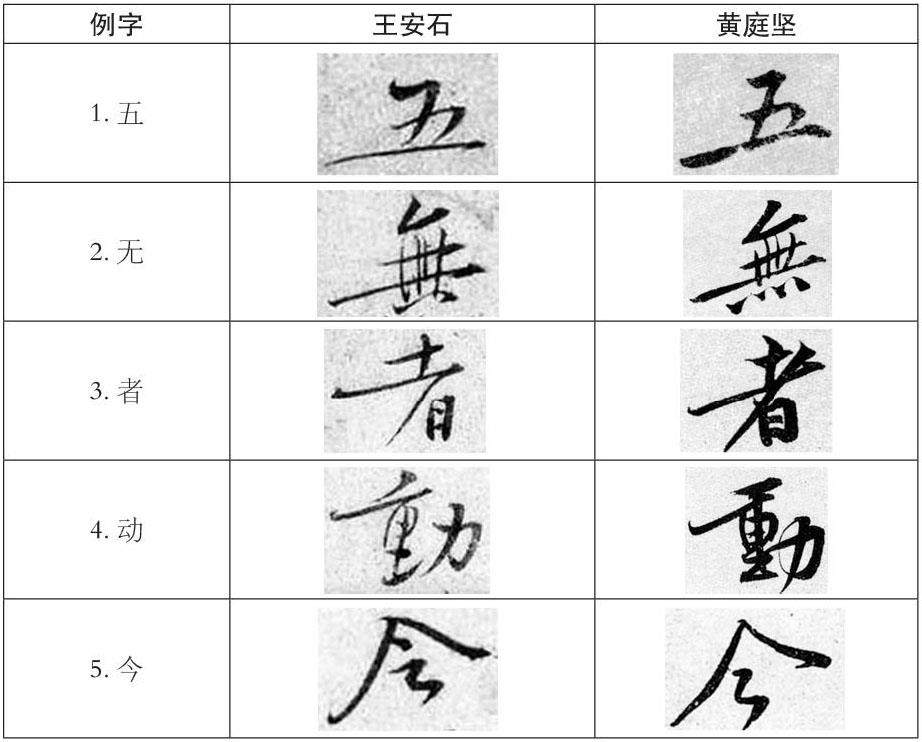 例字 王安石 黄庭坚
1. 五 五 五
2. 无 無 無
3. 者 者 者
4. 动 動 動
5. 今 今 今